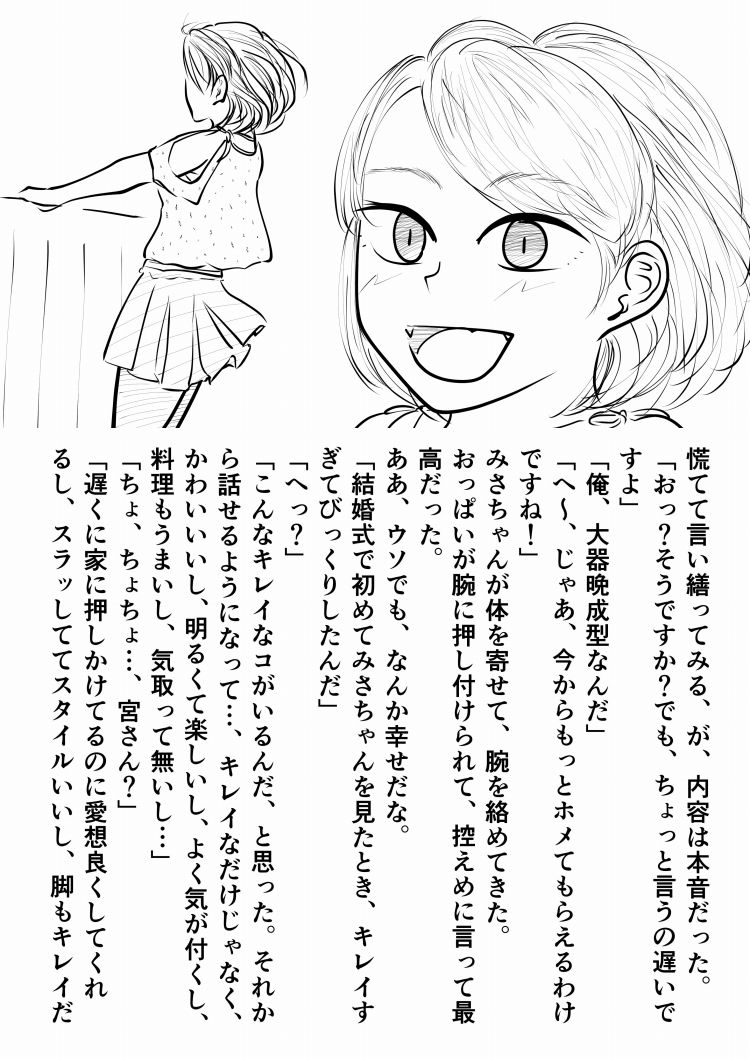 慌てて言い繕ってみる、が、内容は本音だった。
「おっ？そうですか？でも、ちょっと言うの遅いで
すよ」
「俺、大器晩成型なんだ」
「へ～、じゃあ、今からもっとホメてもらえるわけ
ですね！」
みさちゃんが体を寄せて、腕を絡めてきた。
おっぱいが腕に押し付けられて、控えめに言って最
高だった。
ああ、ウソでも、なんか幸せだな。
「結婚式で初めてみさちゃんを見たとき、キレイす
ぎてびっくりしたんだ」
「へっ？」
「こんなキレイなコがいるんだ、と思った。それか
ら話せるようになって…、キレイなだけじゃなく、
かわいいいし、明るくて楽しいし、よく気が付くし、
料理もうまいし、気取って無いし…」
「ちょ、ちょちょ…、宮さん？」
「遅くに家に押しかけてるのに愛想良くしてくれ
るし、スラッしててスタイルいいし、脚もキレイだ